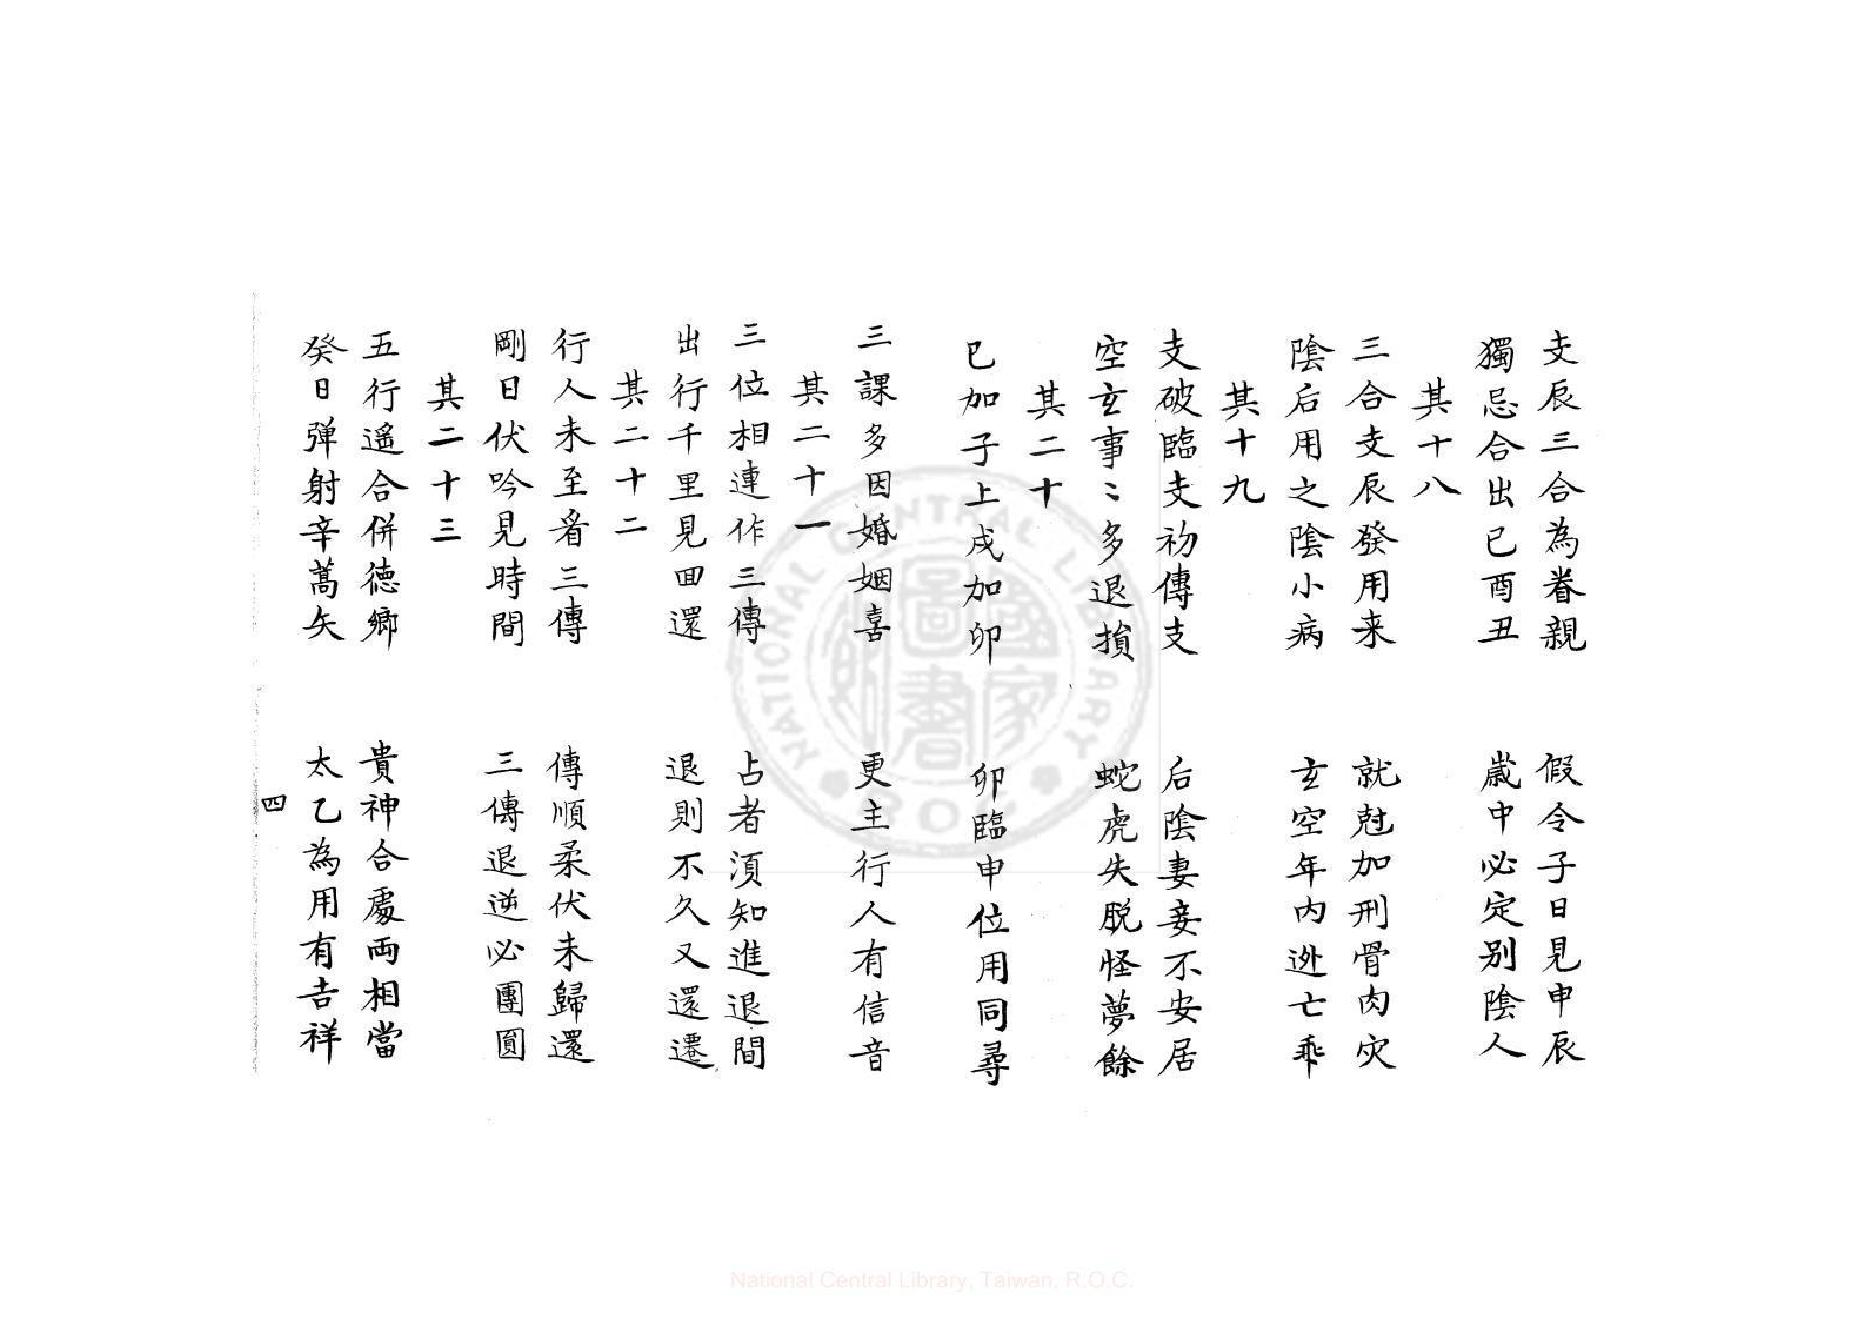 支辰三合為眷親　假令子日見申辰
獨忌合出巳酉丑　歲中必定別陰人
其十八
三合支辰發用来　就尅加刑骨肉灾
陰后用之陰小病　玄空年內迯亡乖
其十九
支破臨支初傳支　后陰妻妾不安居
空玄事〻多退損　蛇虎失脫怪夢餘
其二十
巳加子上戌加卯　卯臨申位用同尋
三課多因婚姻喜　更主行人有信音
其二十一
三位相連作三傳　占者湏知進退間
出行千里見囬還　退則不久又還遷
其二十二
行人未至看三傳　傳順柔伏未歸還
剛日伏吟見時間　三傳退逆必團圓
其二十三
五行遙合併德鄉　貴神合處両相當
癸日弹射辛蒿矢　太乙為用有吉祥
四
NATIONAL CENTRAL LIBRARY
R.O.C.
國家圖書館
National Central Library, Taiwan, R.O.C.